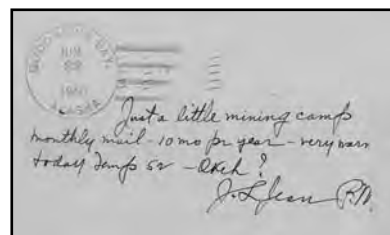 JUN
22
ALASKA
Just a little mining camp
monthly mail - 10 mo pr year - very warm
today Temp 52 - Okeh ?
J. L. Jean P.M.